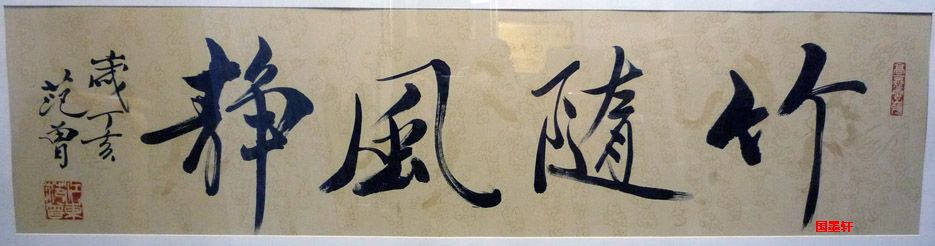 竹隨風靜
歲丁亥
范曾
国墨轩